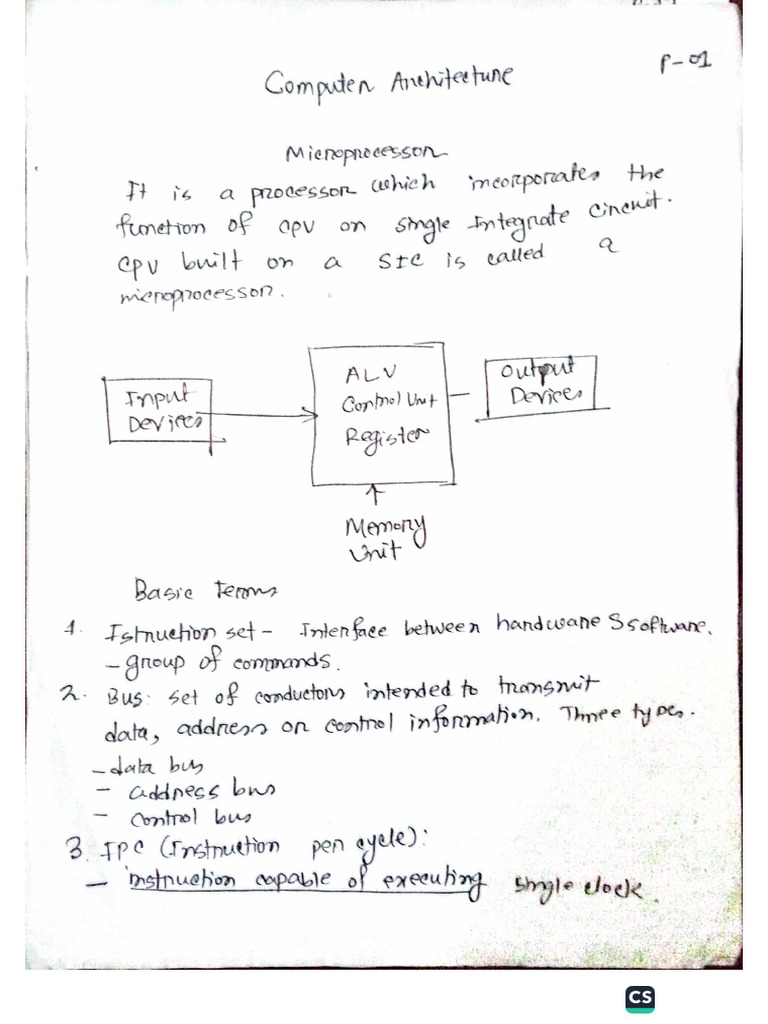 P-01
Computer Architecture
Microprocessor
It is a processor which incorporates the
function of CPU on single Integrate circuit.
CPU built on a SIC is called a
microprocessor.
Input
Devices
ALU
Control Unit
Register
Output
Devices
Memory
Unit
Basic Terms
1. Istruction set - Interface between hardware S software.
- group of commands.
2. Bus: set of conductors intended to transmit
data, address or control information. Three types.
- data bus
- address bus
- control bus
3. IPC (Instruction per cycle):
- instruction capable of executing single clock.
CS